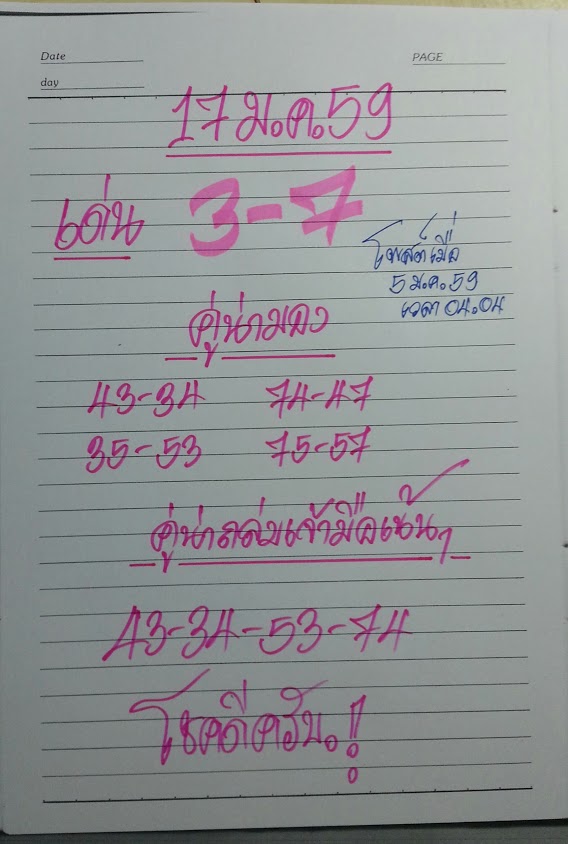 Date
PAGE
day
17 ม.ค.59
เด่น 3-7
โพสต์เมื่อ
5 ม.ค.59
เวลา 04.04
คู่น่ามอง
43-34 74-47
35-53 75-57
คู่น่าถล่มเจ้ามือเช้นๆ
43-34-53-74
โชคดีครับ.!